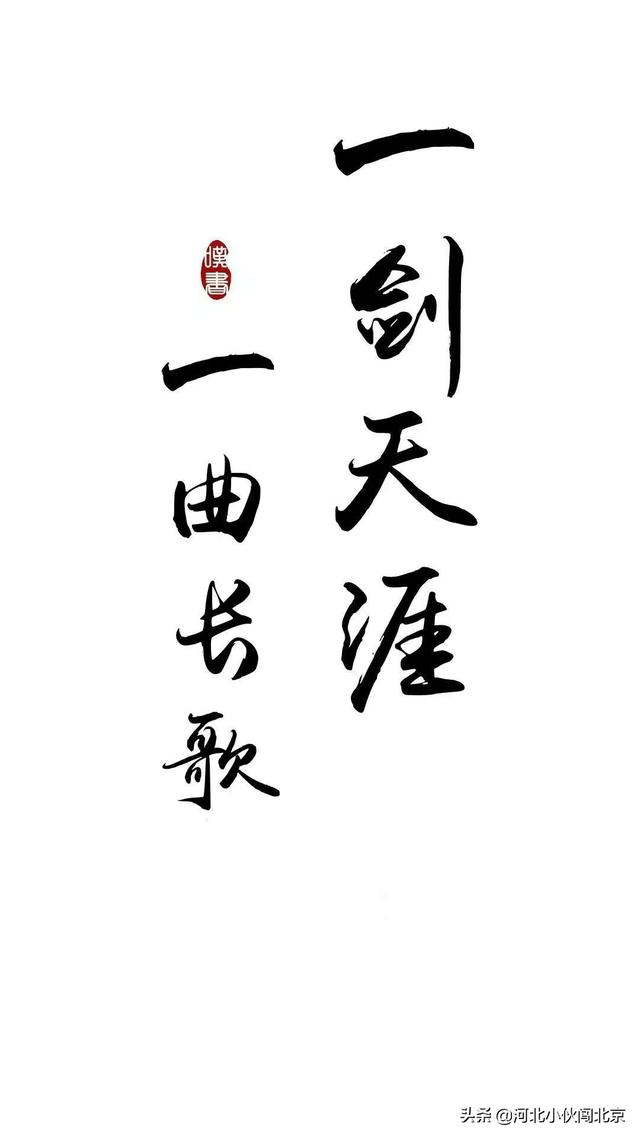 一剑天涯
一曲长歌
嘆書
头条 @河北小伙闯北京